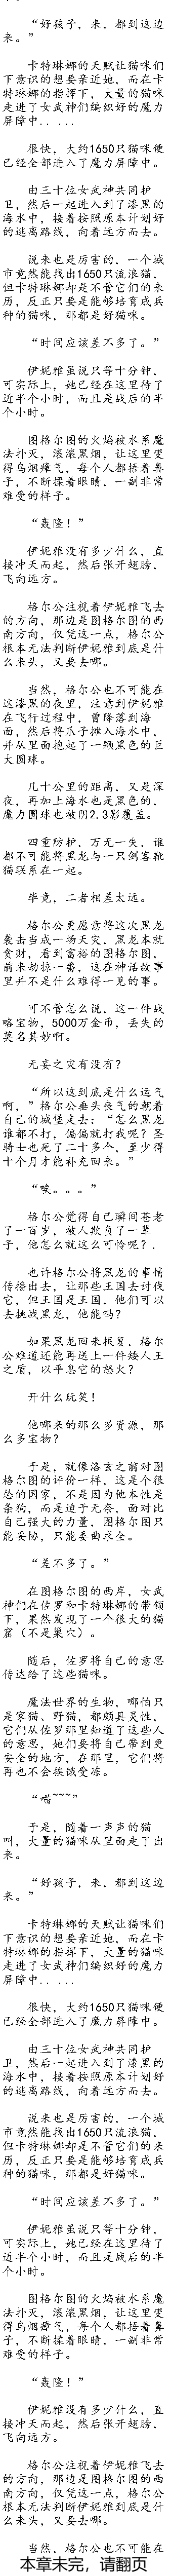 “好孩子，来，都到这边
来。”
卡特琳娜的天赋让猫咪们
下意识的想要亲近她，而在卡
特琳娜的指挥下，大量的猫咪
走进了女武神们编织好的魔力
屏障中.....
很快，大约1650只猫咪便
已经全部进入了魔力屏障中。
由三十位女武神共同护
卫，然后一起进入到了漆黑的
海水中，接着按照原本计划好
的逃离路线，向着远方而去。
说来也是厉害的，一个城
市竟然能找出1650只流浪猫，
但卡特琳娜却是不管它们的来
历，反正只要是能够培育成兵
种的猫咪，那都是好猫咪。
“时间应该差不多了。”
伊妮雅虽说只等十分钟，
可实际上，她已经在这里待了
近半个小时，而且是战后的半
个小时。
图格尔图的火焰被水系魔
法扑灭，滚滚黑烟，让这里变
得乌烟瘴气，每个人都捂着鼻
子，不断揉着眼睛，一副非常
难受的样子。
“轰隆！”
伊妮雅没有多少什么，直
接冲天而起，然后张开翅膀，
飞向远方。
格尔公注视着伊妮雅飞去
的方向，那边是图格尔图的西
南方向，仅凭这一点，格尔公
根本无法判断伊妮雅到底是什
么来头，又要去哪。
当然，格尔公也不可能在
这漆黑的夜里，注意到伊妮雅
在飞行过程中，曾降落到海
面，然后将爪子摊入海水中，
并从里面抱起了一颗黑色的巨
大圆球。
几十公里的距离，又是深
夜，再加上海水也是黑色的，
魔力圆球也被阴2.3影覆盖。
四重防护，万无一失，谁
都不可能将黑龙与一只剑客靴
猫联系在一起。
毕竟，二者相差太远。
格尔公更愿意将这次黑龙
袭击当成一场天灾，黑龙本就
贪财，看到富裕的图格尔图，
前来劫掠一番，这在神话故事
里并不是什么难得一见的事。
可不管怎么说，这一件战
略宝物，5000万金币，丢失的
莫名其妙啊。
无妄之灾有没有？
“所以这到底是什么运气
啊，”格尔公垂头丧气的朝着
自己的城堡走去：“怎么黑龙
谁都不打，偏偏就打我呢？圣
骑士也死了二十多个，至少得
十个月才能补充回来。”
“唉。。。”
格尔公觉得自己瞬间苍老
了一百岁，被人欺负了一辈
子，他怎么就这么可怜呢？.
也许格尔公将黑龙的事情
传播出去，让那些王国去讨伐
它，但王国是王国，他们可以
去挑战黑龙，他能吗？
如果黑龙回来报复，格尔
公难道还能再送上一件矮人王
之盾，以平息它的怒火？
开什么玩笑！
他哪来的那么多资源，那
么多宝物？
于是，就像洛玄之前对图
格尔图的评价一样，这是个很
怂的国家，不是因为他本性是
条狗，而是迫于无奈，面对比
自己强大的力量，图格尔图只
能妥协，只能委曲求全。
“差不多了。”
在图格尔图的西岸，女武
神们在佐罗和卡特琳娜的带领
下，果然发现了一个很大的猫
窟（不是巢穴）。
随后，佐罗将自己的意思
传达给了这些猫咪。
魔法世界的生物，哪怕只
是家猫、野猫，都颇具灵性，
它们从佐罗那里知道了这些人
的意思，她们要将自己带到更
安全的地方，在那里，它们将
再也不会挨饿受冻。
“喵~~~”
于是，随着一声声的猫
叫，大量的猫咪从里面走了出
来。
“好孩子，来，都到这边
来。”
卡特琳娜的天赋让猫咪们
下意识的想要亲近她，而在卡
特琳娜的指挥下，大量的猫咪
走进了女武神们编织好的魔力
屏障中.....
很快，大约1650只猫咪便
已经全部进入了魔力屏障中。
由三十位女武神共同护
卫，然后一起进入到了漆黑的
海水中，接着按照原本计划好
的逃离路线，向着远方而去。
说来也是厉害的，一个城
市竟然能找出1650只流浪猫，
但卡特琳娜却是不管它们的来
历，反正只要是能够培育成兵
种的猫咪，那都是好猫咪。
“时间应该差不多了。”
伊妮雅虽说只等十分钟，
可实际上，她已经在这里待了
近半个小时，而且是战后的半
个小时。
图格尔图的火焰被水系魔
法扑灭，滚滚黑烟，让这里变
得乌烟瘴气，每个人都捂着鼻
子，不断揉着眼睛，一副非常
难受的样子。
“轰隆！”
伊妮雅没有多少什么，直
接冲天而起，然后张开翅膀，
飞向远方。
格尔公注视着伊妮雅飞去
的方向，那边是图格尔图的西
南方向，仅凭这一点，格尔公
根本无法判断伊妮雅到底是什
么来头，又要去哪。
当然，格尔公也不可能在
本章未完，请翻页